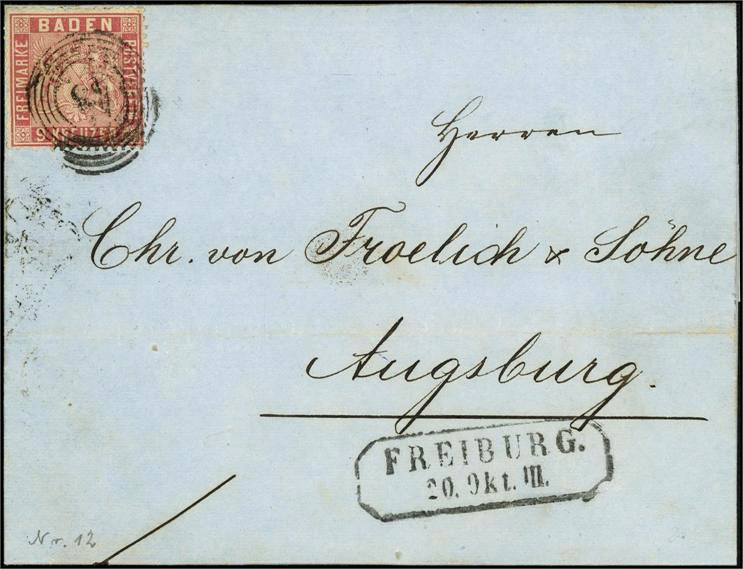 BADEN
FREIMARKE
9 KREUZER
Herren
Chr. von Froelich & Söhne
Augsburg.
FREIBURG.
20. Okt. III.
Nr. 12